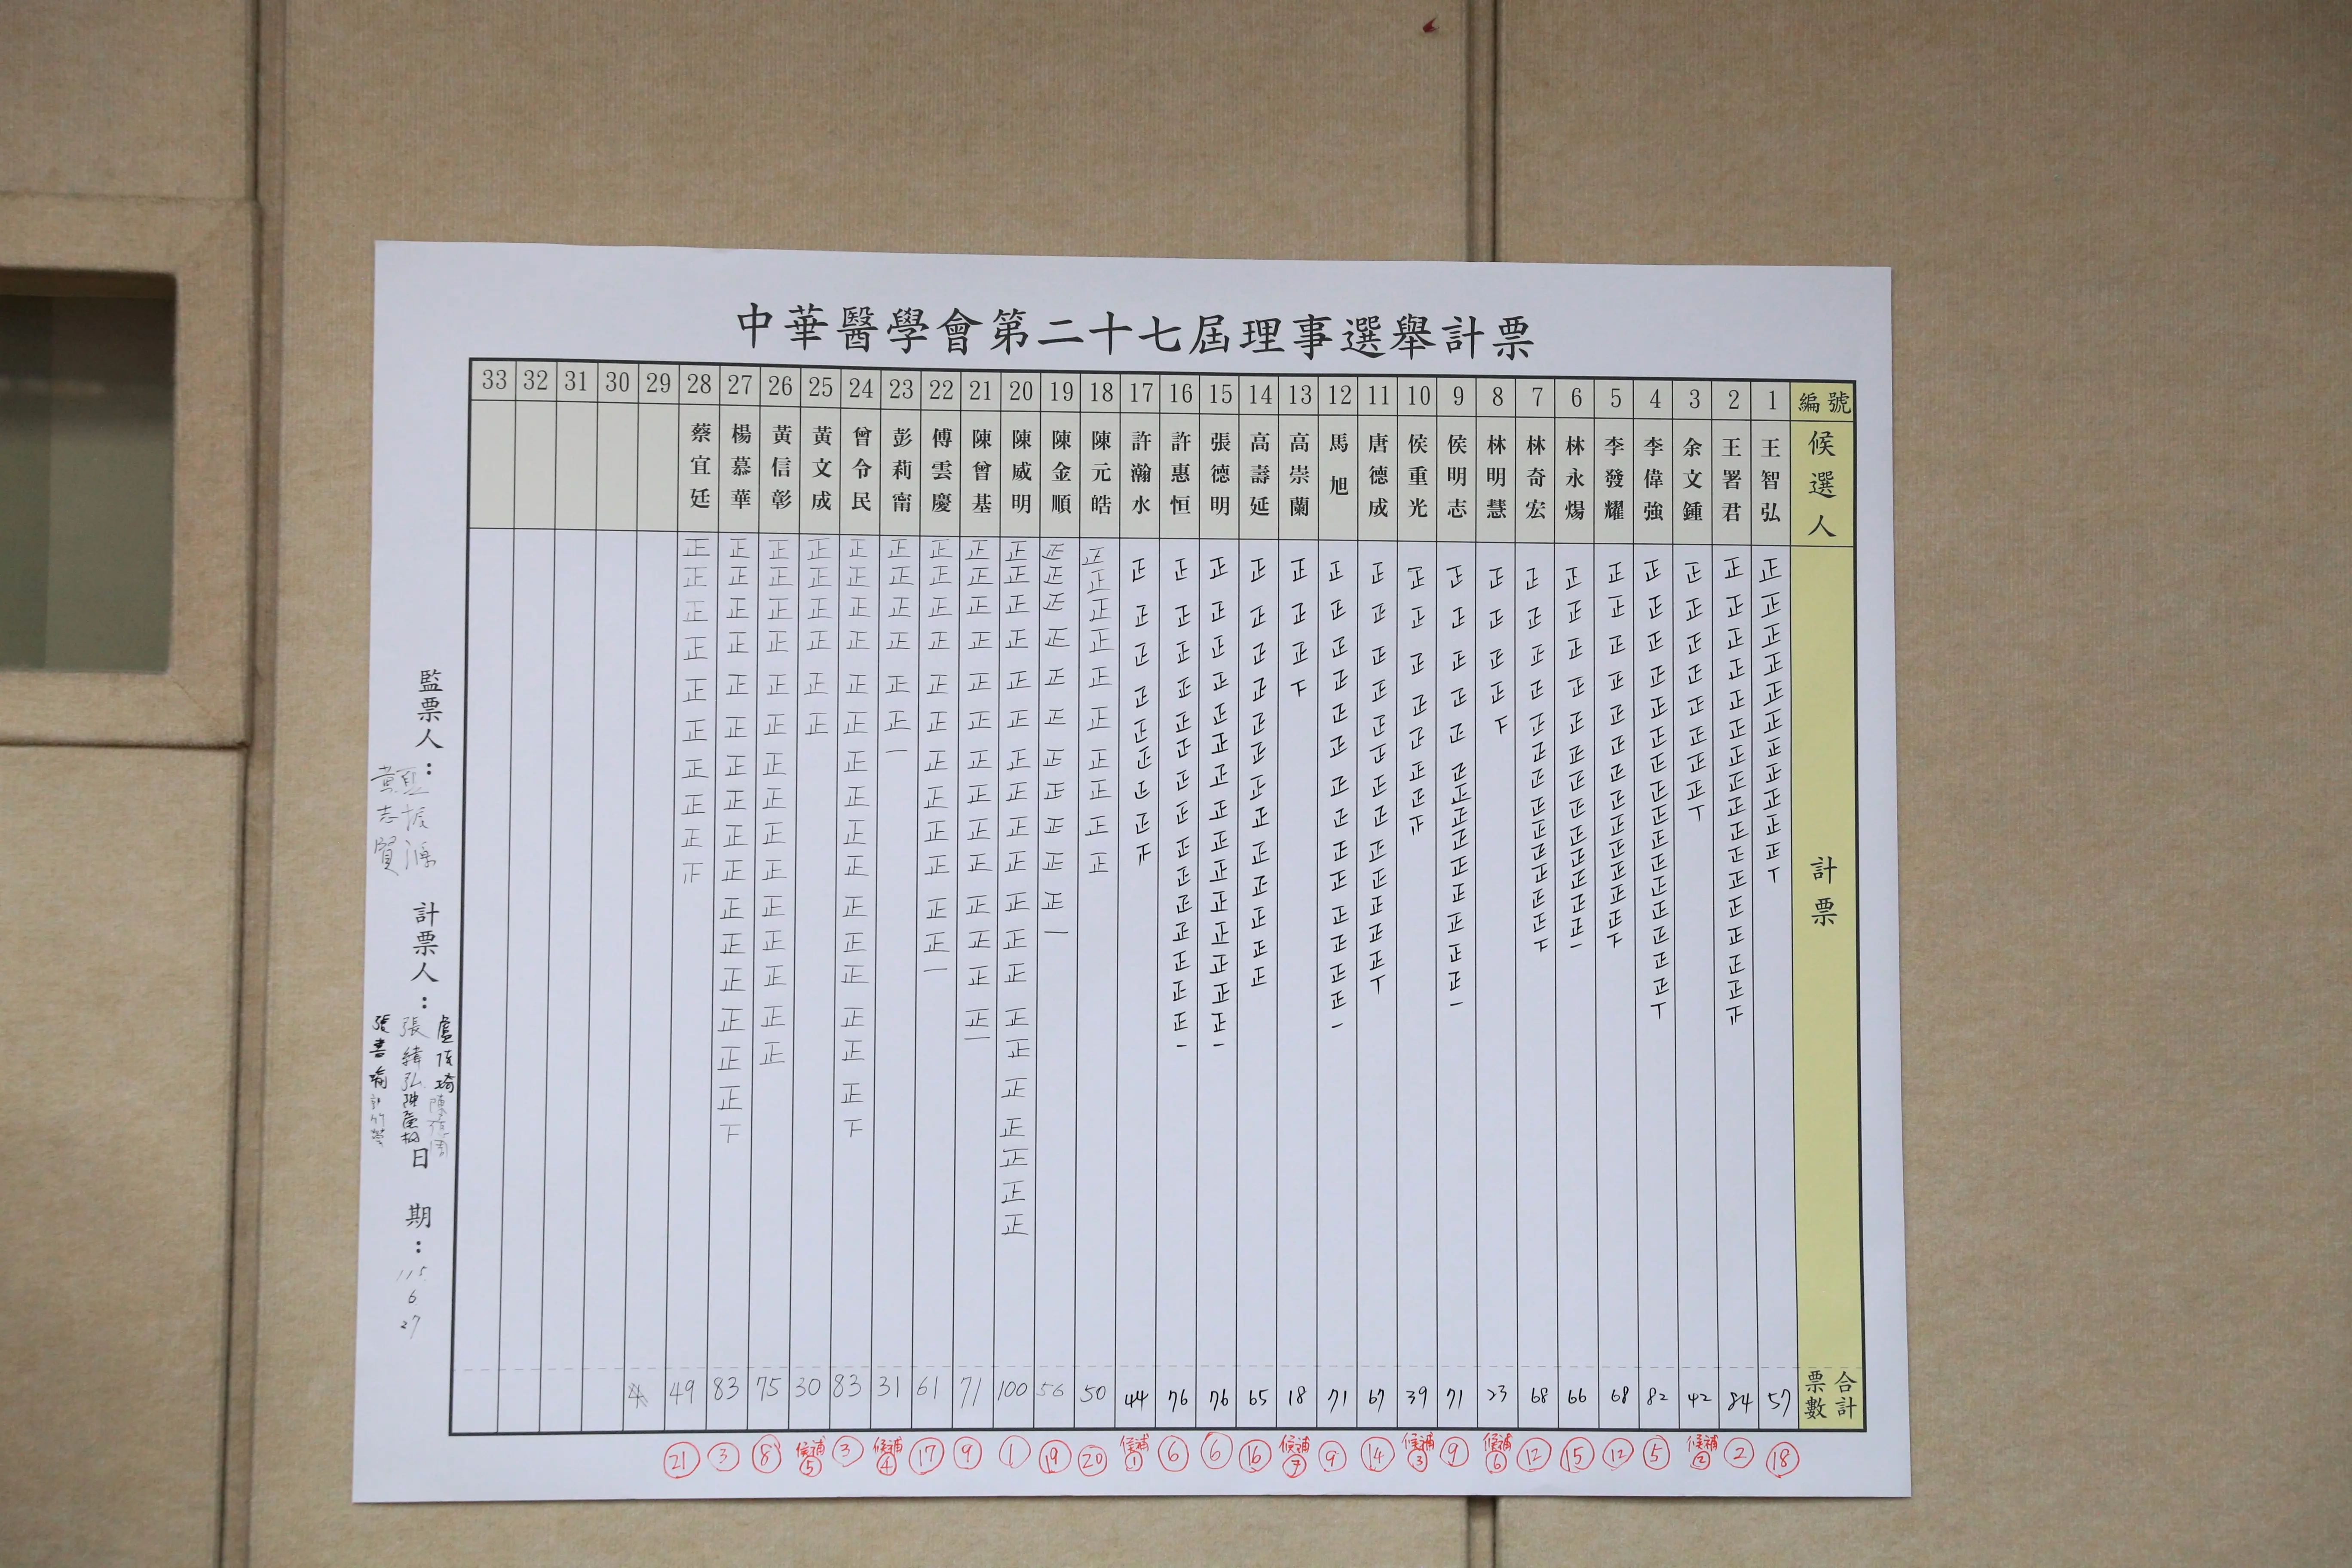 中華醫學會第二十七屆理事選舉計票
編號 1 2 3 4 5 6 7 8 9 10 11 12 13 14 15 16 17 18 19 20 21 22 23 24 25 26 27 28 29 30 31 32 33
候選人 王智弘 王署君 余文鍾 李偉強 李發耀 林永煬 林奇宏 林明慧 侯明志 侯重光 唐德成 馬旭 高崇蘭 高壽延 張德明 許惠恒 許瀚水 陳元皓 陳金順 陳威明 陳曾基 傅雲慶 彭莉甯 曾令民 黃文成 黃信彰 楊慕華 蔡宜廷
計票
合計票數 57 84 42 82 68 66 68 23 71 39 67 71 18 65 76 76 44 50 56 100 71 61 31 83 30 75 83 49
18 2 候補2 5 12 15 12 候補6 9 候補3 14 9 候補7 16 6 6 候補1 20 19 1 9 17 候補4 3 候補5 8 3 21
監票人：
黃志賢
計票人：
張書瑜
張緯弘
日期：
115
6
27